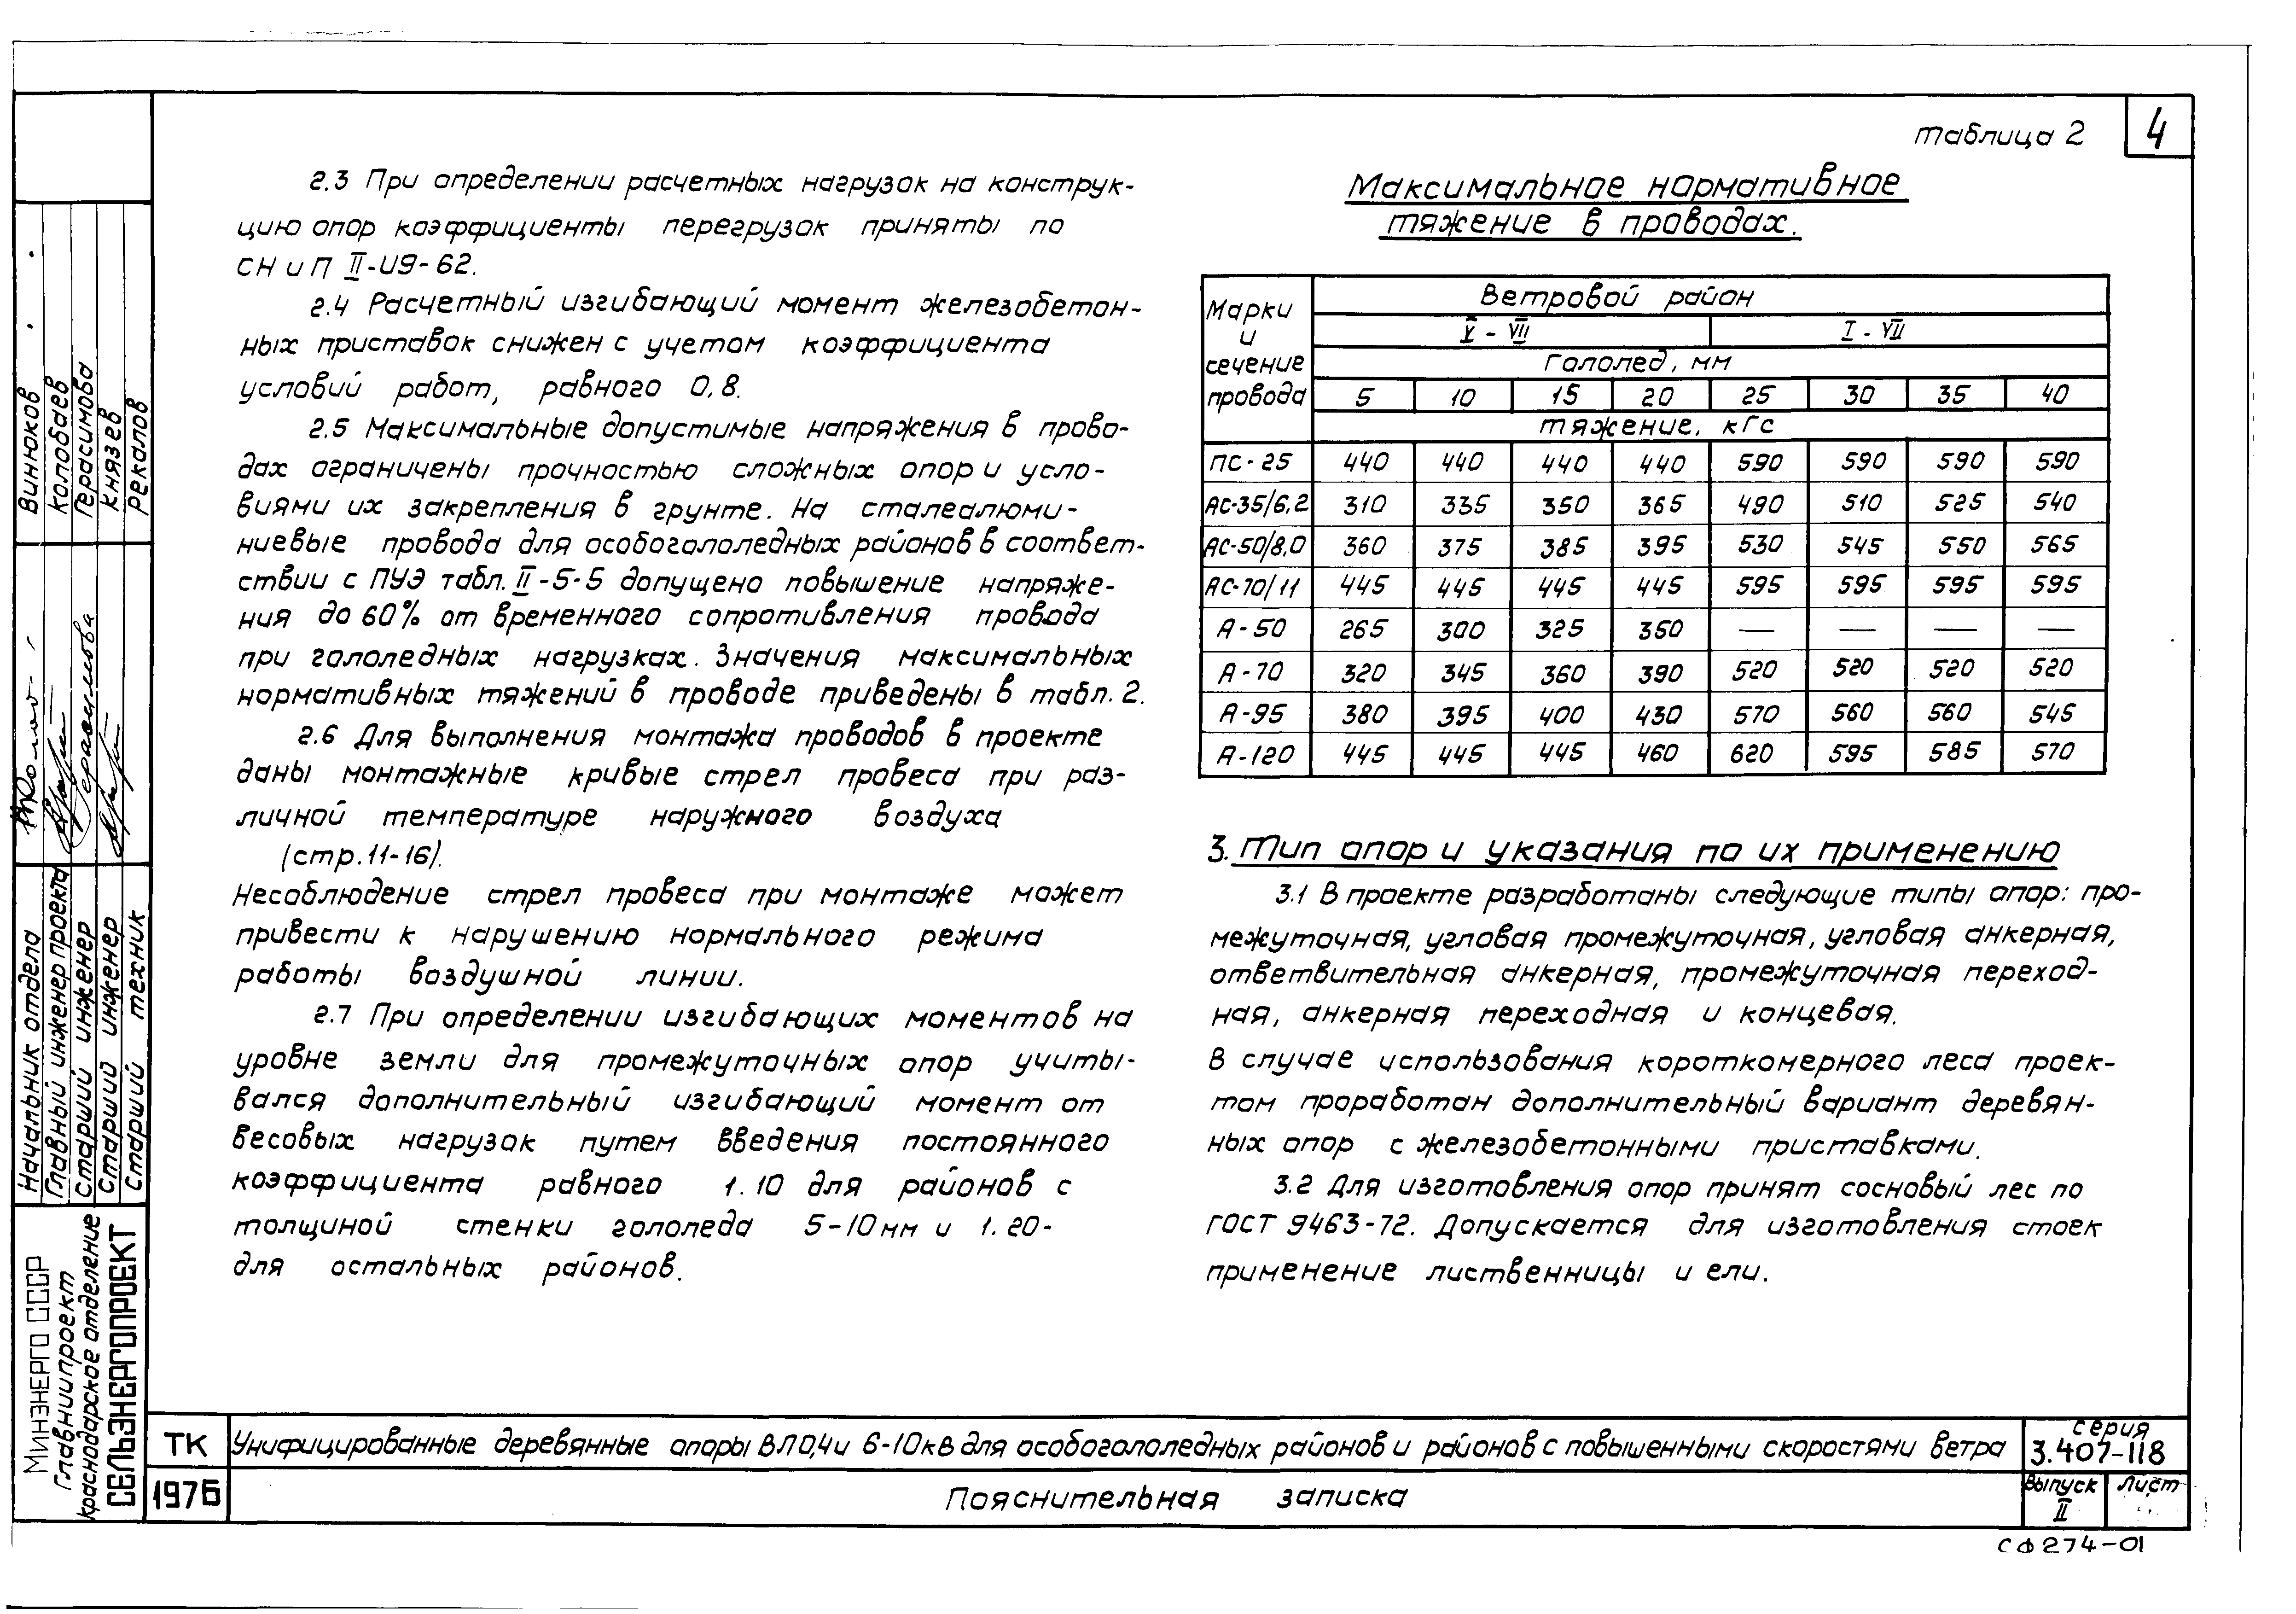 4
2.3 При определении расчетных нагрузок на конструк-
цию опор коэффициенты перегрузок приняты по
СН и П II-И9-62.
2.4 Расчетный изгибающий момент железобетон-
ных приставок снижен с учетом коэффициента
условий работ, равного 0,8.
2.5 Максимальные допустимые напряжения в прово-
дах ограничены прочностью сложных опор и усло-
виями их закрепления в грунте. На сталеалюми-
ниевые провода для особогололедных районов в соответ-
ствии с ПУЭ табл. II-5-5 допущено повышение напряже-
ния до 60% от временного сопротивления провода
при гололедных нагрузках. Значения максимальных
нормативных тяжений в проводе приведены в табл. 2.
2.6 Для выполнения монтажа проводов в проекте
даны монтажные кривые стрел провеса при раз-
личной температуре наружного воздуха
(стр. 11-16).
Несоблюдение стрел провеса при монтаже может
привести к нарушению нормального режима
работы воздушной линии.
2.7 При определении изгибающих моментов на
уровне земли для промежуточных опор учиты-
вался дополнительный изгибающий момент от
весовых нагрузок путем введения постоянного
коэффициента равного 1.10 для районов с
толщиной стенки гололеда 5-10 мм и 1.20-
для остальных районов.
таблица 2
Максимальное нормативное
тяжение в проводах.
Марки и сечение провода
Ветровой район
V - VII I - VII
Гололед, мм
5 10 15 20 25 30 35 40
тяжение, кГс
ПС-25 440 440 440 440 590 590 590 590
АС-35/6,2 310 335 350 365 490 510 525 540
АС-50/8,0 360 375 385 395 530 545 550 565
АС-70/11 445 445 445 445 595 595 595 595
А-50 265 300 325 350 — — — —
А-70 320 345 360 390 520 520 520 520
А-95 380 395 400 430 570 560 560 545
А-120 445 445 445 460 620 595 585 570
3. Тип опор и указания по их применению
3.1 В проекте разработаны следующие типы опор: про-
межуточная, угловая промежуточная, угловая анкерная,
ответвительная анкерная, промежуточная переход-
ная, анкерная переходная и концевая.
В случае использования короткомерного леса проек-
том проработан дополнительный вариант деревян-
ных опор с железобетонными приставками.
3.2 Для изготовления опор принят сосновый лес по
ГОСТ 9463-72. Допускается для изготовления стоек
применение лиственницы и ели.
Винюков
Колобаев
Герасимова
Князев
Рекалов
Начальник отдела
Главный инженер проекта
Старший инженер
Старший инженер
Старший техник
Минэнерго СССР
Главниипроект
Краснодарское отделение
СЕЛЬЭНЕРГОПРОЕКТ
ТК
1976
Унифицированные деревянные опоры ВЛ 0,4 и 6-10 кВ для особогололедных районов и районов с повышенными скоростями ветра
Пояснительная записка
серия
3.407-118
Выпуск
II
Лист
СФ 274-01